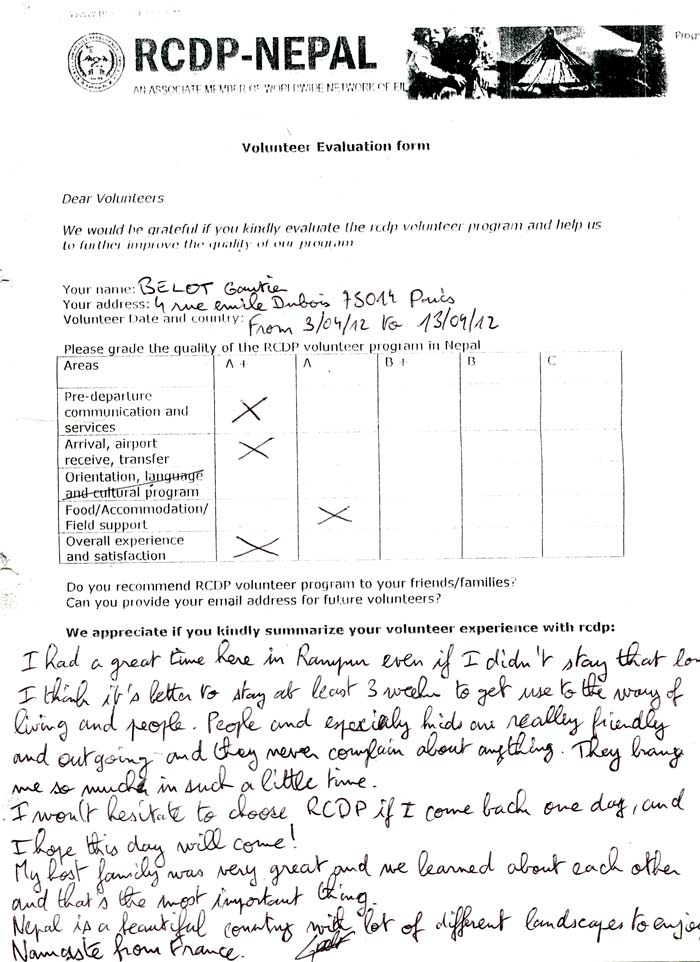 RCDP-NEPAL
AN ASSOCIATE MEMBER OF WORLDWIDE NETWORK OF
Volunteer Evaluation form
Dear Volunteers
We would be grateful if you kindly evaluate the rcdp volunteer program and help us
to further improve the quality of our program
Your name: BELOT Gautier
Your address: 4 rue emile Dubois 75014 Paris
Volunteer Date and country: From 3/04/12 to 13/04/12
Please grade the quality of the RCDP volunteer program in Nepal
Areas A+ A B+ B C
Pre-departure
communication and
services
Arrival, airport
receive, transfer
Orientation, language
and cultural program
Food/Accommodation/
Field support
Overall experience
and satisfaction
Do you recommend RCDP volunteer program to your friends/families?
Can you provide your email address for future volunteers?
We appreciate if you kindly summarize your volunteer experience with rcdp:
I had a great time here in Rampur even if I didn't stay that lon
I think it's better to stay at least 3 weeks to get use to the way of
living and people. People and especialy kids are really friendly
and outgoing and they never complain about anything. They brang
me so much in such a little time.
I won't hesitate to choose RCDP if I come back one day, and
I hope this day will come!
My host family was very great and we learned about each other
and that's the most important thing.
Nepal is a beautiful country with lot of different landscapes to enjoy
Namaste from France.